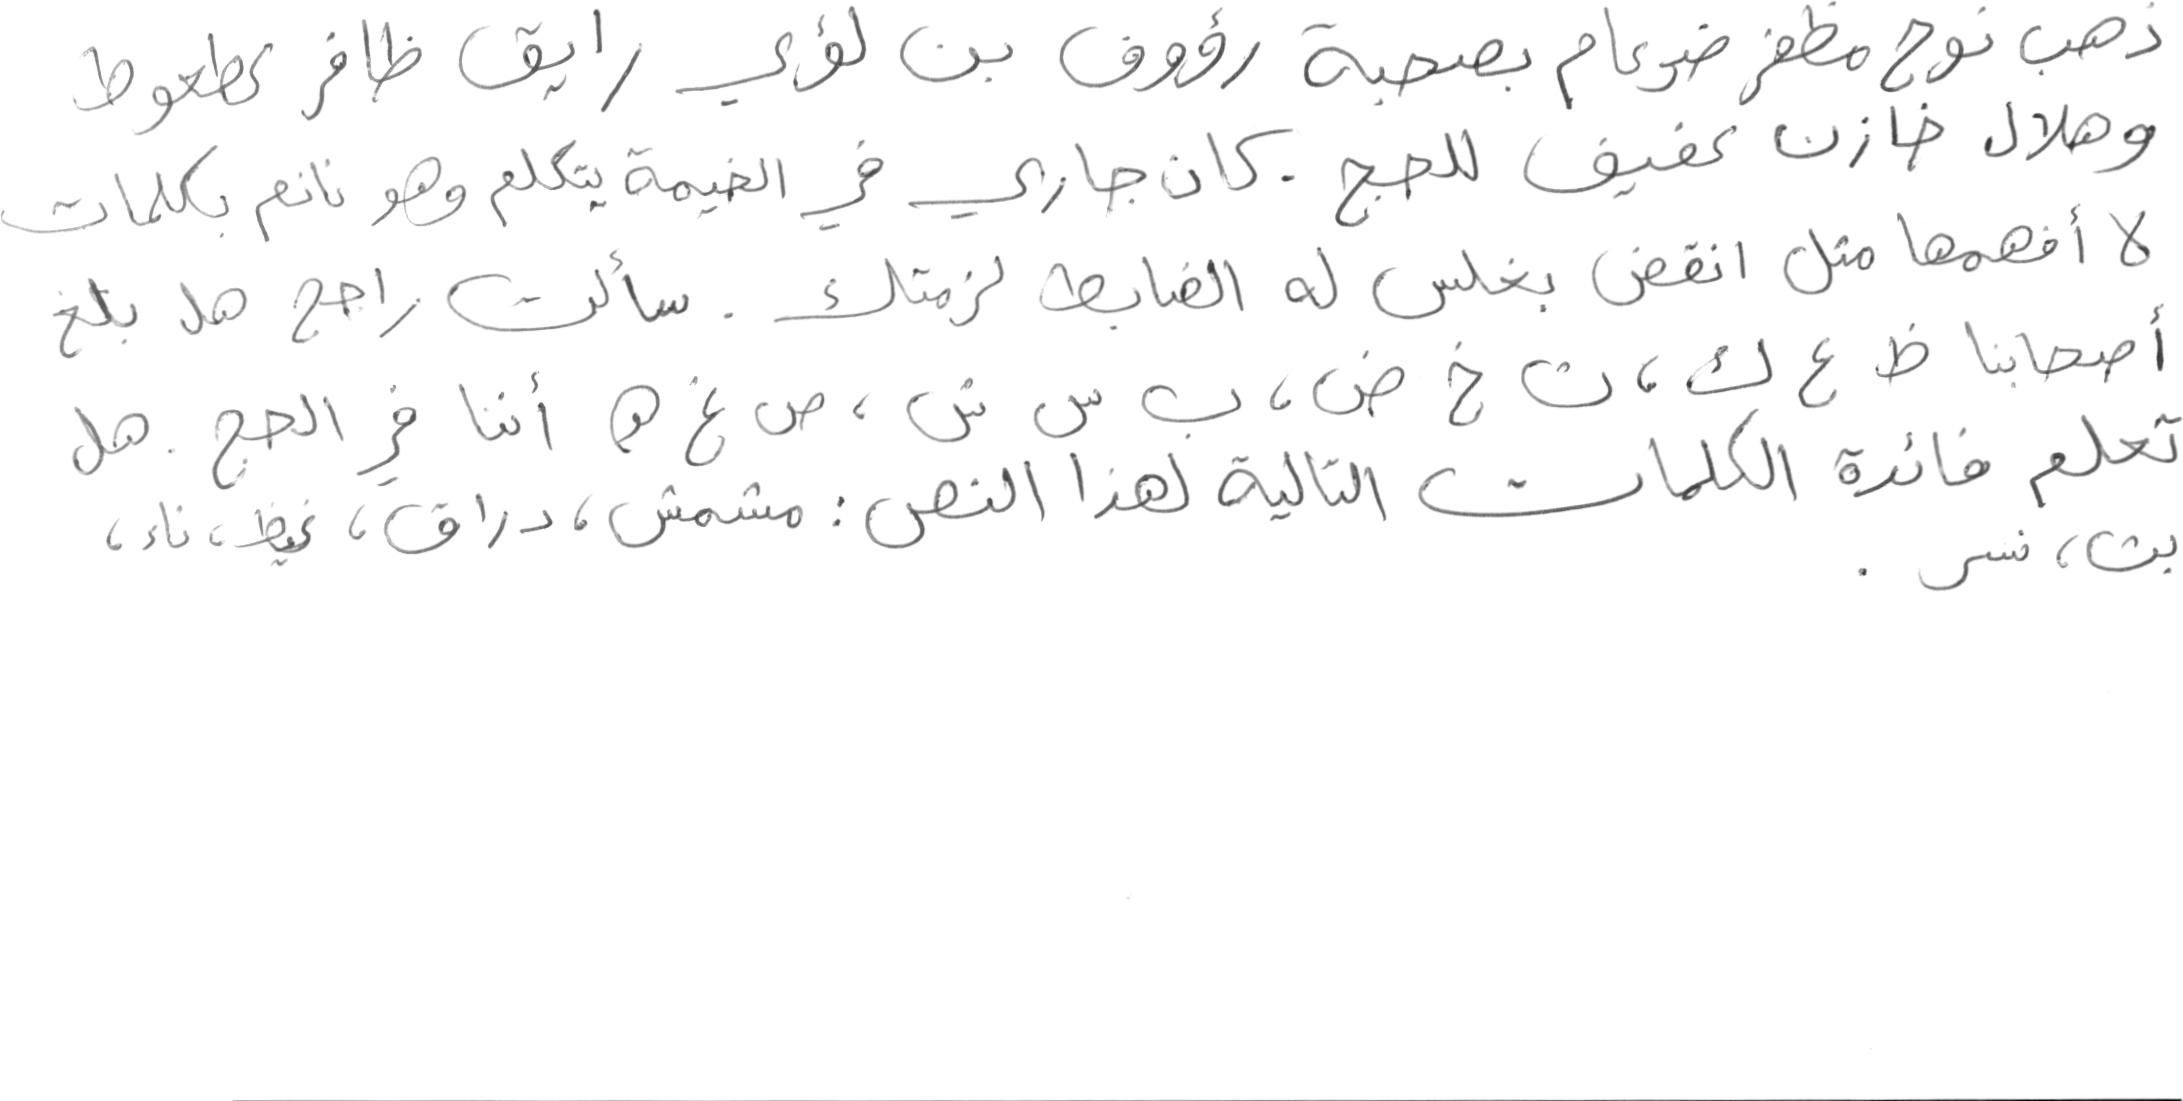 ذهب نوح مظفر ضرغام بصحبة رؤوف بن لؤي رايق ظافر عطعوط
وهلال خازن عفيف للحج . كان جاري في الخيمة يتكلم وهو نائم بكلمات
لا أفهمها مثل انقض بغلس له الضابط لزمتك . سألت راجح هل بلغ
أصحابنا ظ ع ك ، ث خ ض ، ب س ش ، ص غ ه أننا في الحج . هل
تعلم فائدة الكلمات التالية لهذا النص : مشمش ، دراق ، غيظ ، ناء ،
بث ، نسر .